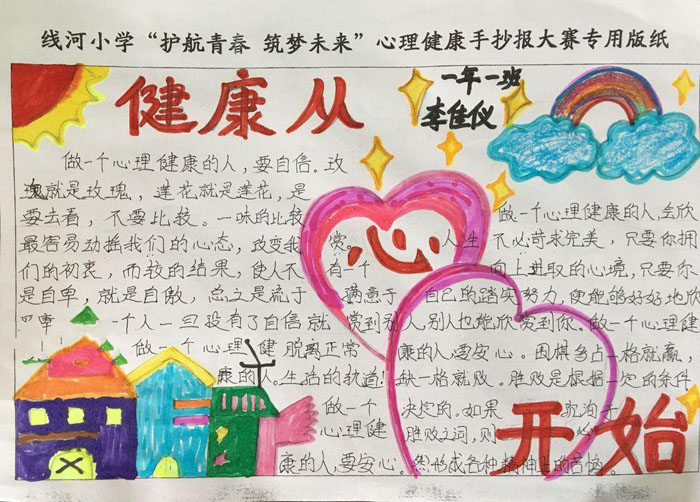 线河小学“护航青春 筑梦未来”心理健康手抄报大赛专用版纸
健康从
一年一班
李佳仪
做一个心理健康的人，要自信。玫
瑰就是玫瑰，莲花就是莲花，是
要去看，不要比较。一味的比较
最容易动摇我们的心态，改变我
们的初衷，而较的结果，使人不
是自卑，就是自傲，总之是流于
一个人一旦没有了自信就
做一个心理健 脱离正常
康的人，生活的轨道！
做一个心理健康的人，会欣
赏。 人生 不必苛求完美，只要你拥
有一个 向上进取的心境，只要你
满意于 自己的踏实努力，便能够好好地欣
赏到别人，别人也能欣赏到你。做一个心理健
康的人，要安心。围棋多占一格就赢，
缺一格就败。胜败是根据一定的条件
做一个 决定的。如果 沉沦于
心理健 胜败之词，则
康的人，要安心。然形成各种精神上的苦恼。
开始